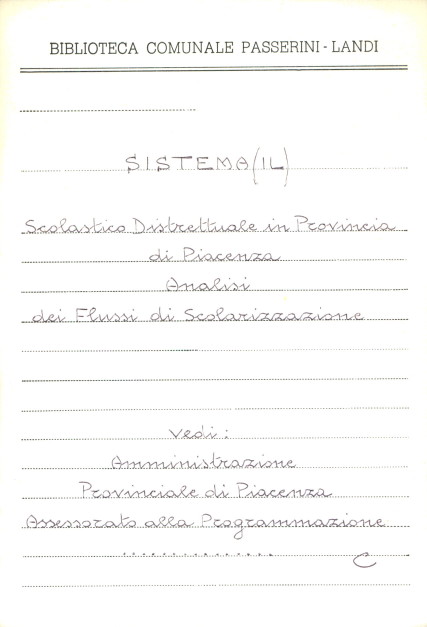 BIBLIOTECA COMUNALE PASSERINI - LANDI
SISTEMA (IL)
Scolastico Distrettuale in Provincia
di Piacenza
Analisi
dei Flussi di Scolarizzazione
vedi :
Amministrazione
Provinciale di Piacenza
Assessorato alla Programmazione
...............
C